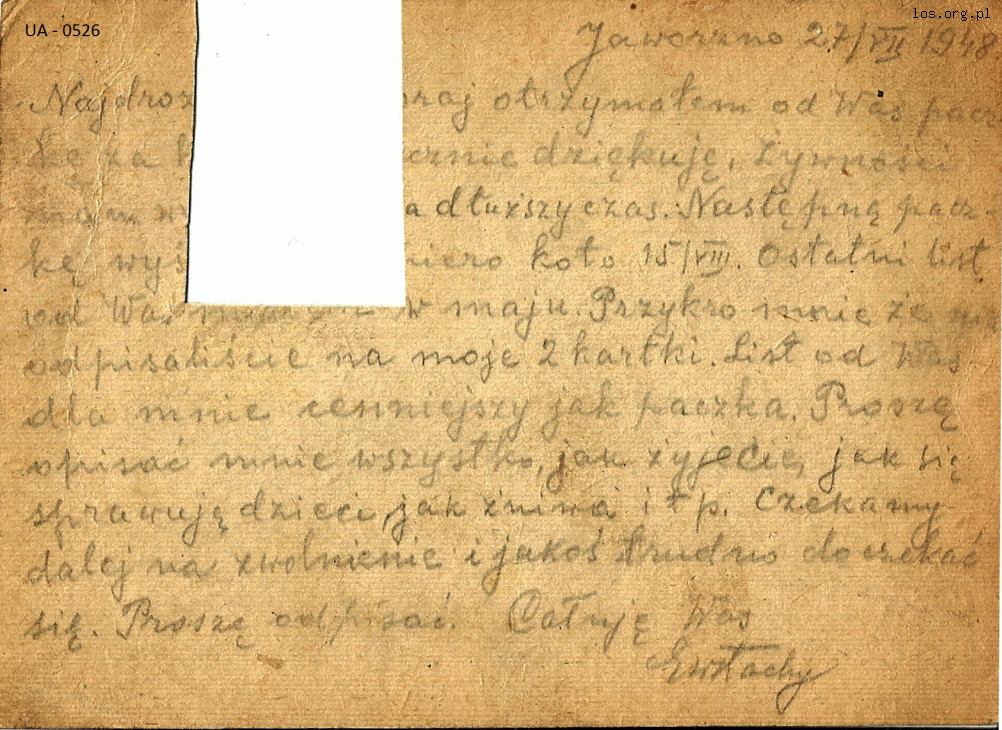 los.org.pl
UA - 0526
Jaworzno 27/VII 1948.
Najdroż oraj otrzymałem od Was pacz-
kę za cznie dziękuję. Żywności
mam a dłuższy czas. Następną pacz-
kę wyś piero koło 15/VIII. Ostatni list
od Was w maju. Przykro mnie że nie
odpisaliście na moje 2 kartki. List od Was
dla mnie cenniejszy jak paczka. Proszę
opisać mnie wszystko, jak żyjecie, jak się
sprawują dzieci, jak żniwa i t p. Czekamy
dalej na zwolnienie i jakoś trudno doczekać
się. Proszę odpisać. Całuję Was
Ewstachy